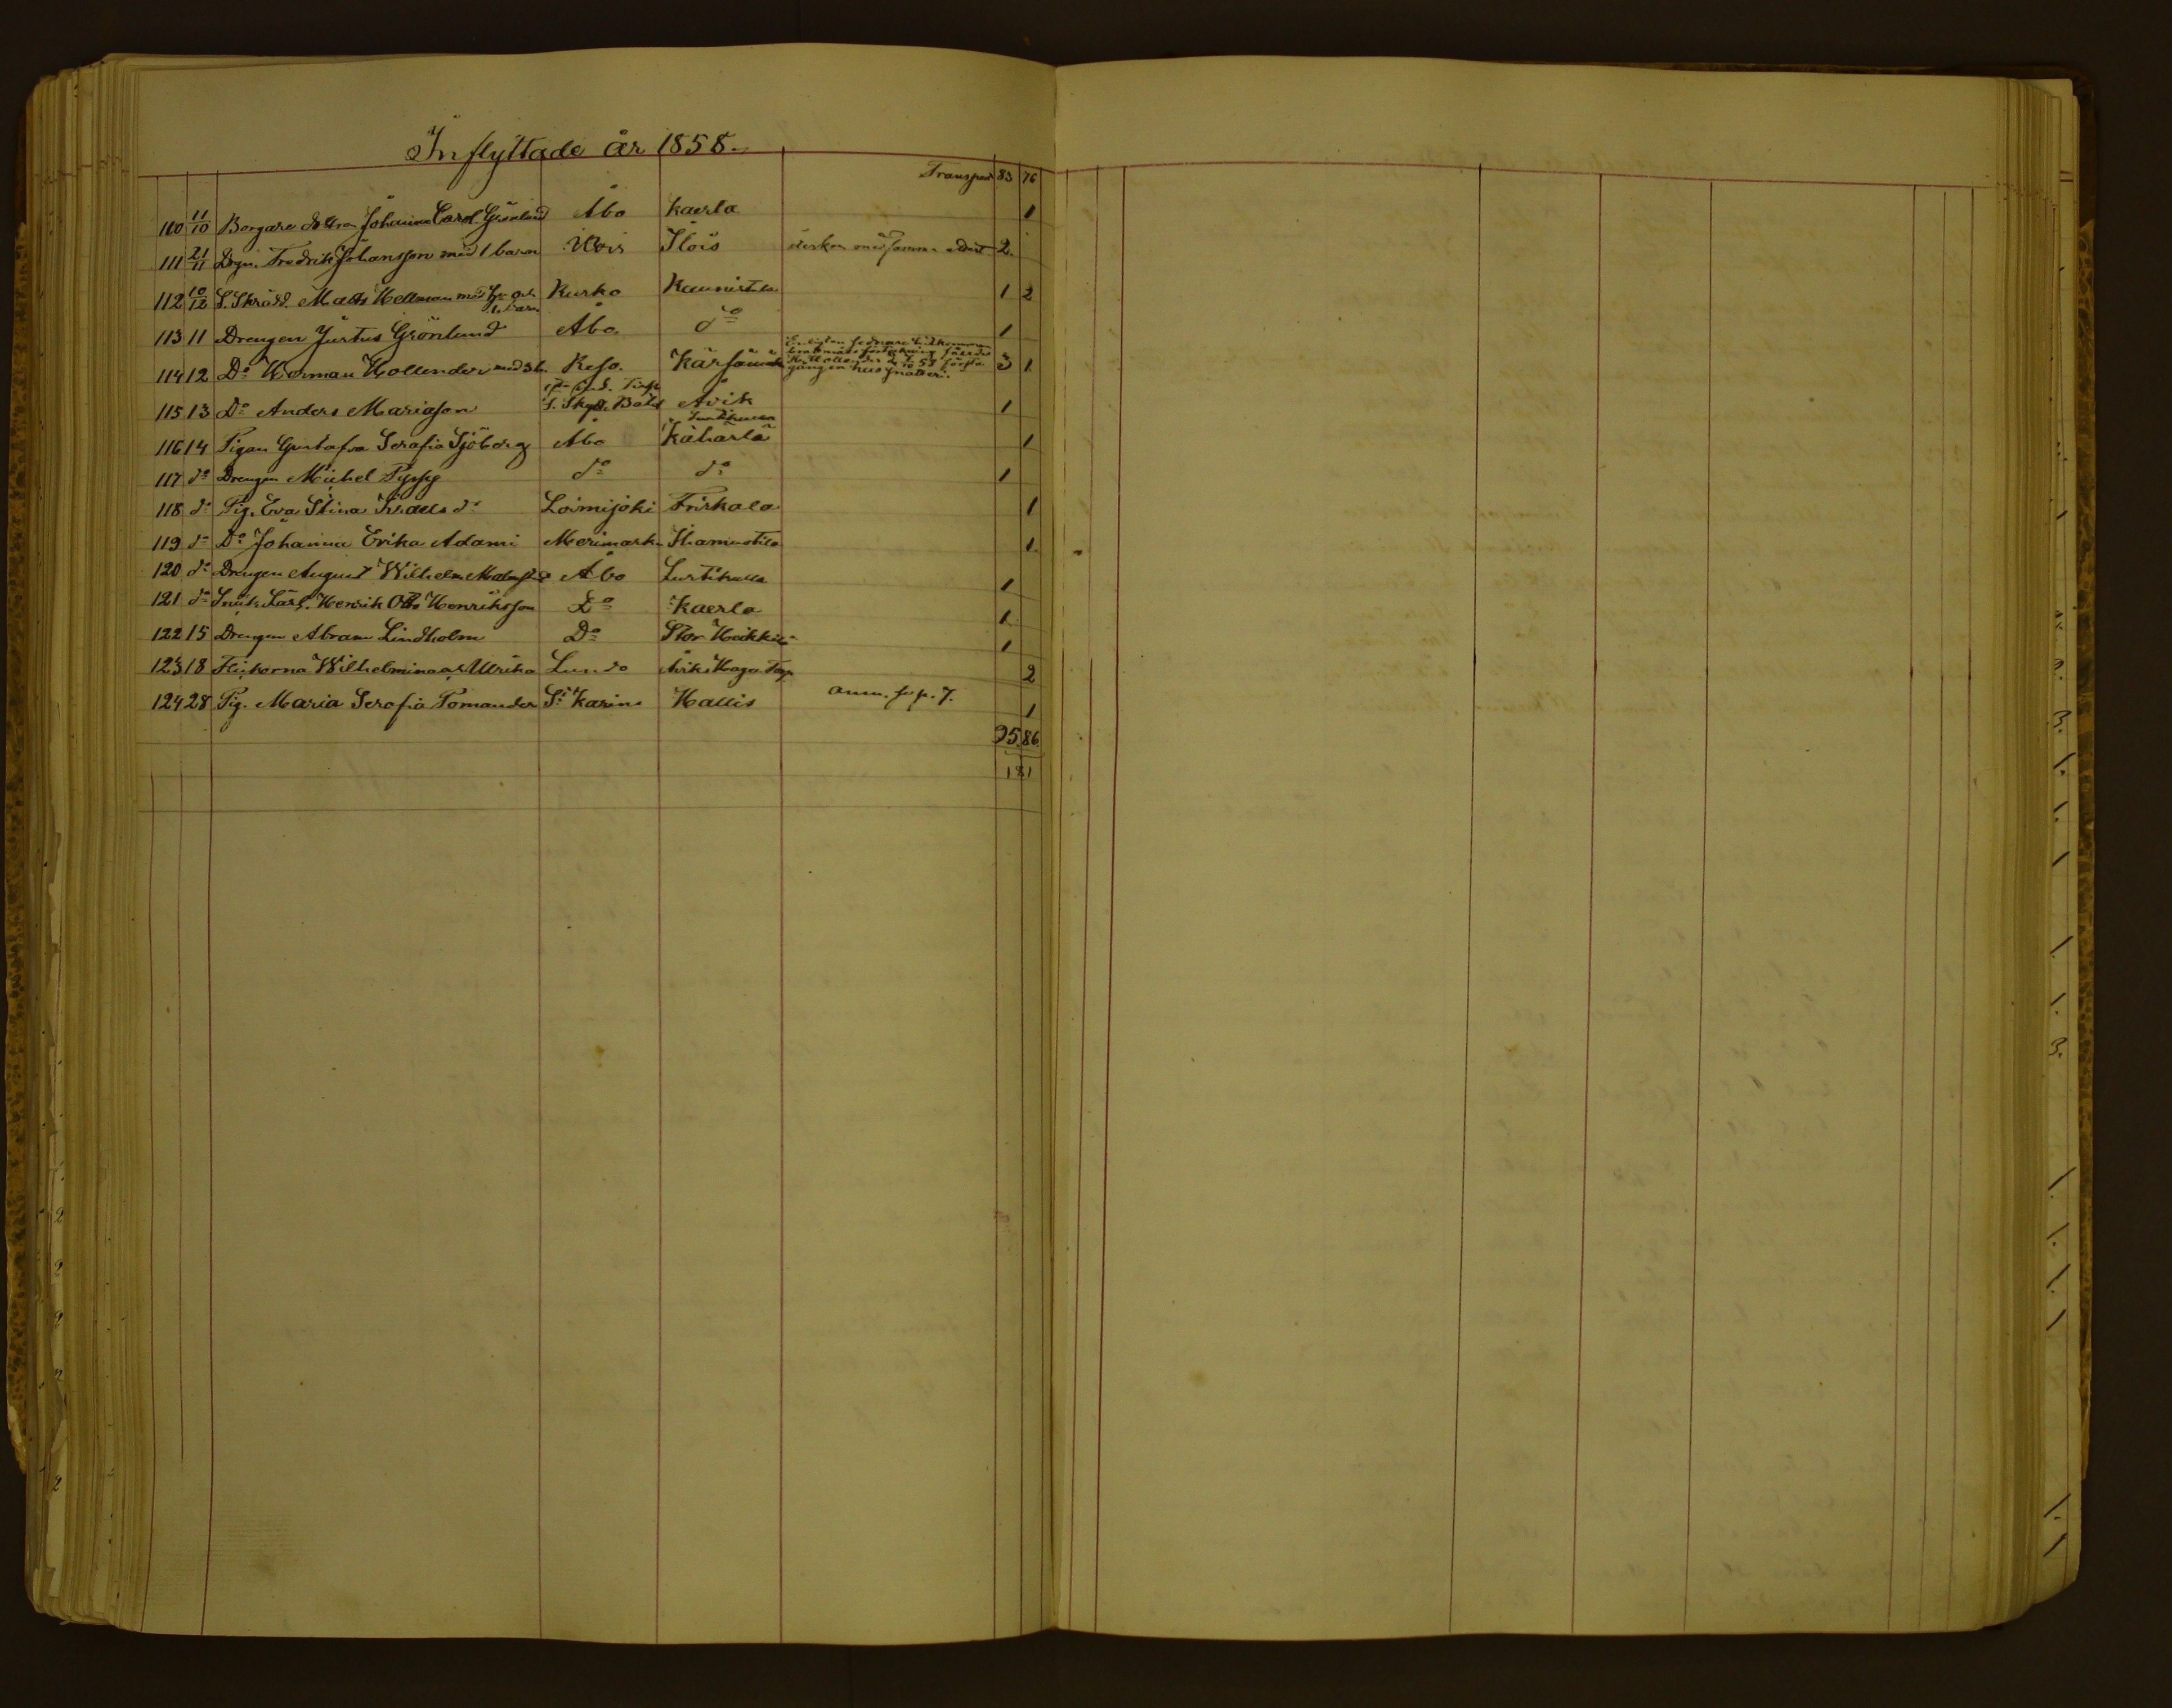 Inflyttade år 1858.
Transport 83 76
110 11/10 Borgare dottren Johanna Carol. Grönlund Åbo Kaerla 1
111 21/11 Drgn. Fredrik Johansson med 1 barn Ilois 2
112 10/12 S. Skrädd. Matts Hellman med h. och Rusko Kaunistu 1 2
1 barn
113 11 Drengen Justus Grönlund Åbo do 1
114 12 Do Herman Hollender med 3 b. Reso. Kärsämäki 3 1
115 13 Do Anders Mariason S. Skytt. Bat. Avik 1
116 14 Pigan Gustafva Serafia Sjöberg Åbo Kähärlä 1
117 do Drengen Michel Pyssy do do 1
118 do Pig. Eva Stina Israels dr Loimijoki Friskala 1
119 do Do Johanna Erika Adami Merimasku 1
120 do Drengen August Wilhelm Åbo Lustikulla 1
121 do Henrik Otto Henriksson Do Kaerla 1
122 15 Drengen Abram Lindholm Do Stor Heikkilä 1
123 18 Flickorna Wilhelmina o. Ulrika Lundo 2
124 28 Pig. Maria Serafia Tomander St Karins Hallis anm. se p. 7. 1
95. 86
181